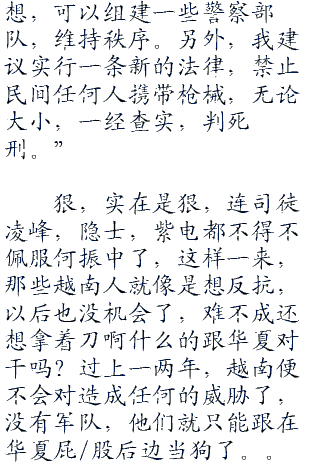 想，可以组建一些警察部
队，维持秩序。另外，我建
议实行一条新的法律，禁止
民间任何人携带枪械，无论
大小，一经查实，判死
刑。”
狠，实在是狠，连司徒
凌峰，隐士，紫电都不得不
佩服何振中了，这样一来，
那些越南人就像是想反抗，
以后也没机会了，难不成还
想拿着刀啊什么的跟华夏对
干吗？过上一两年，越南便
不会对造成任何的威胁了，
没有军队，他们就只能跟在
华夏屁/股后边当狗了。。